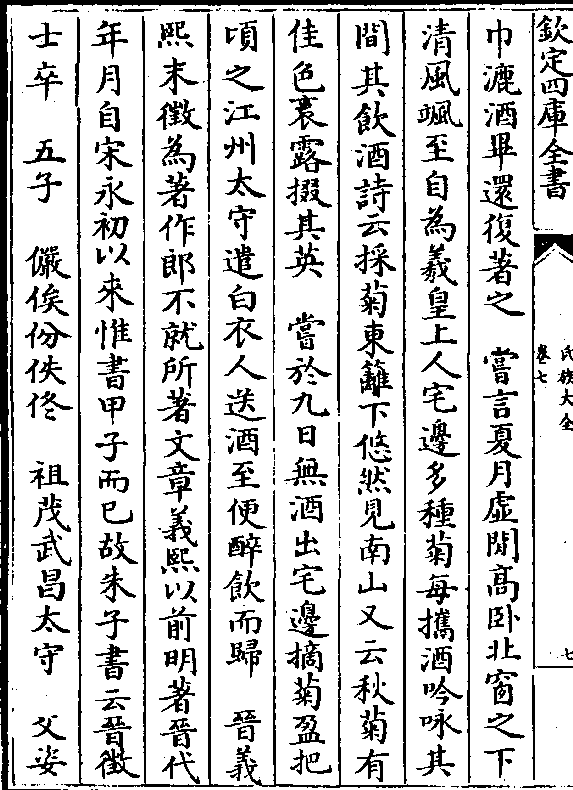 欽定四庫全書
氏族大全
卷七
七
巾漉酒畢還復著之　嘗言夏月虛閒高卧北窗之下
清風颯至自為羲皇上人宅邊多種菊每攜酒吟咏其
間其飲酒詩云採菊東籬下悠然見南山又云秋菊有
佳色裛露掇其英　嘗於九日無酒出宅邊摘菊盈把
頃之江州太守遣白衣人送酒至便醉飲而歸　晉義
熙末徵為著作郎不就所著文章義熙以前明著晉代
年月自宋永初以來惟書甲子而已故朱子書云晉徵
士卒　五子　儼俟份佚佟　祖茂武昌太守　父姿